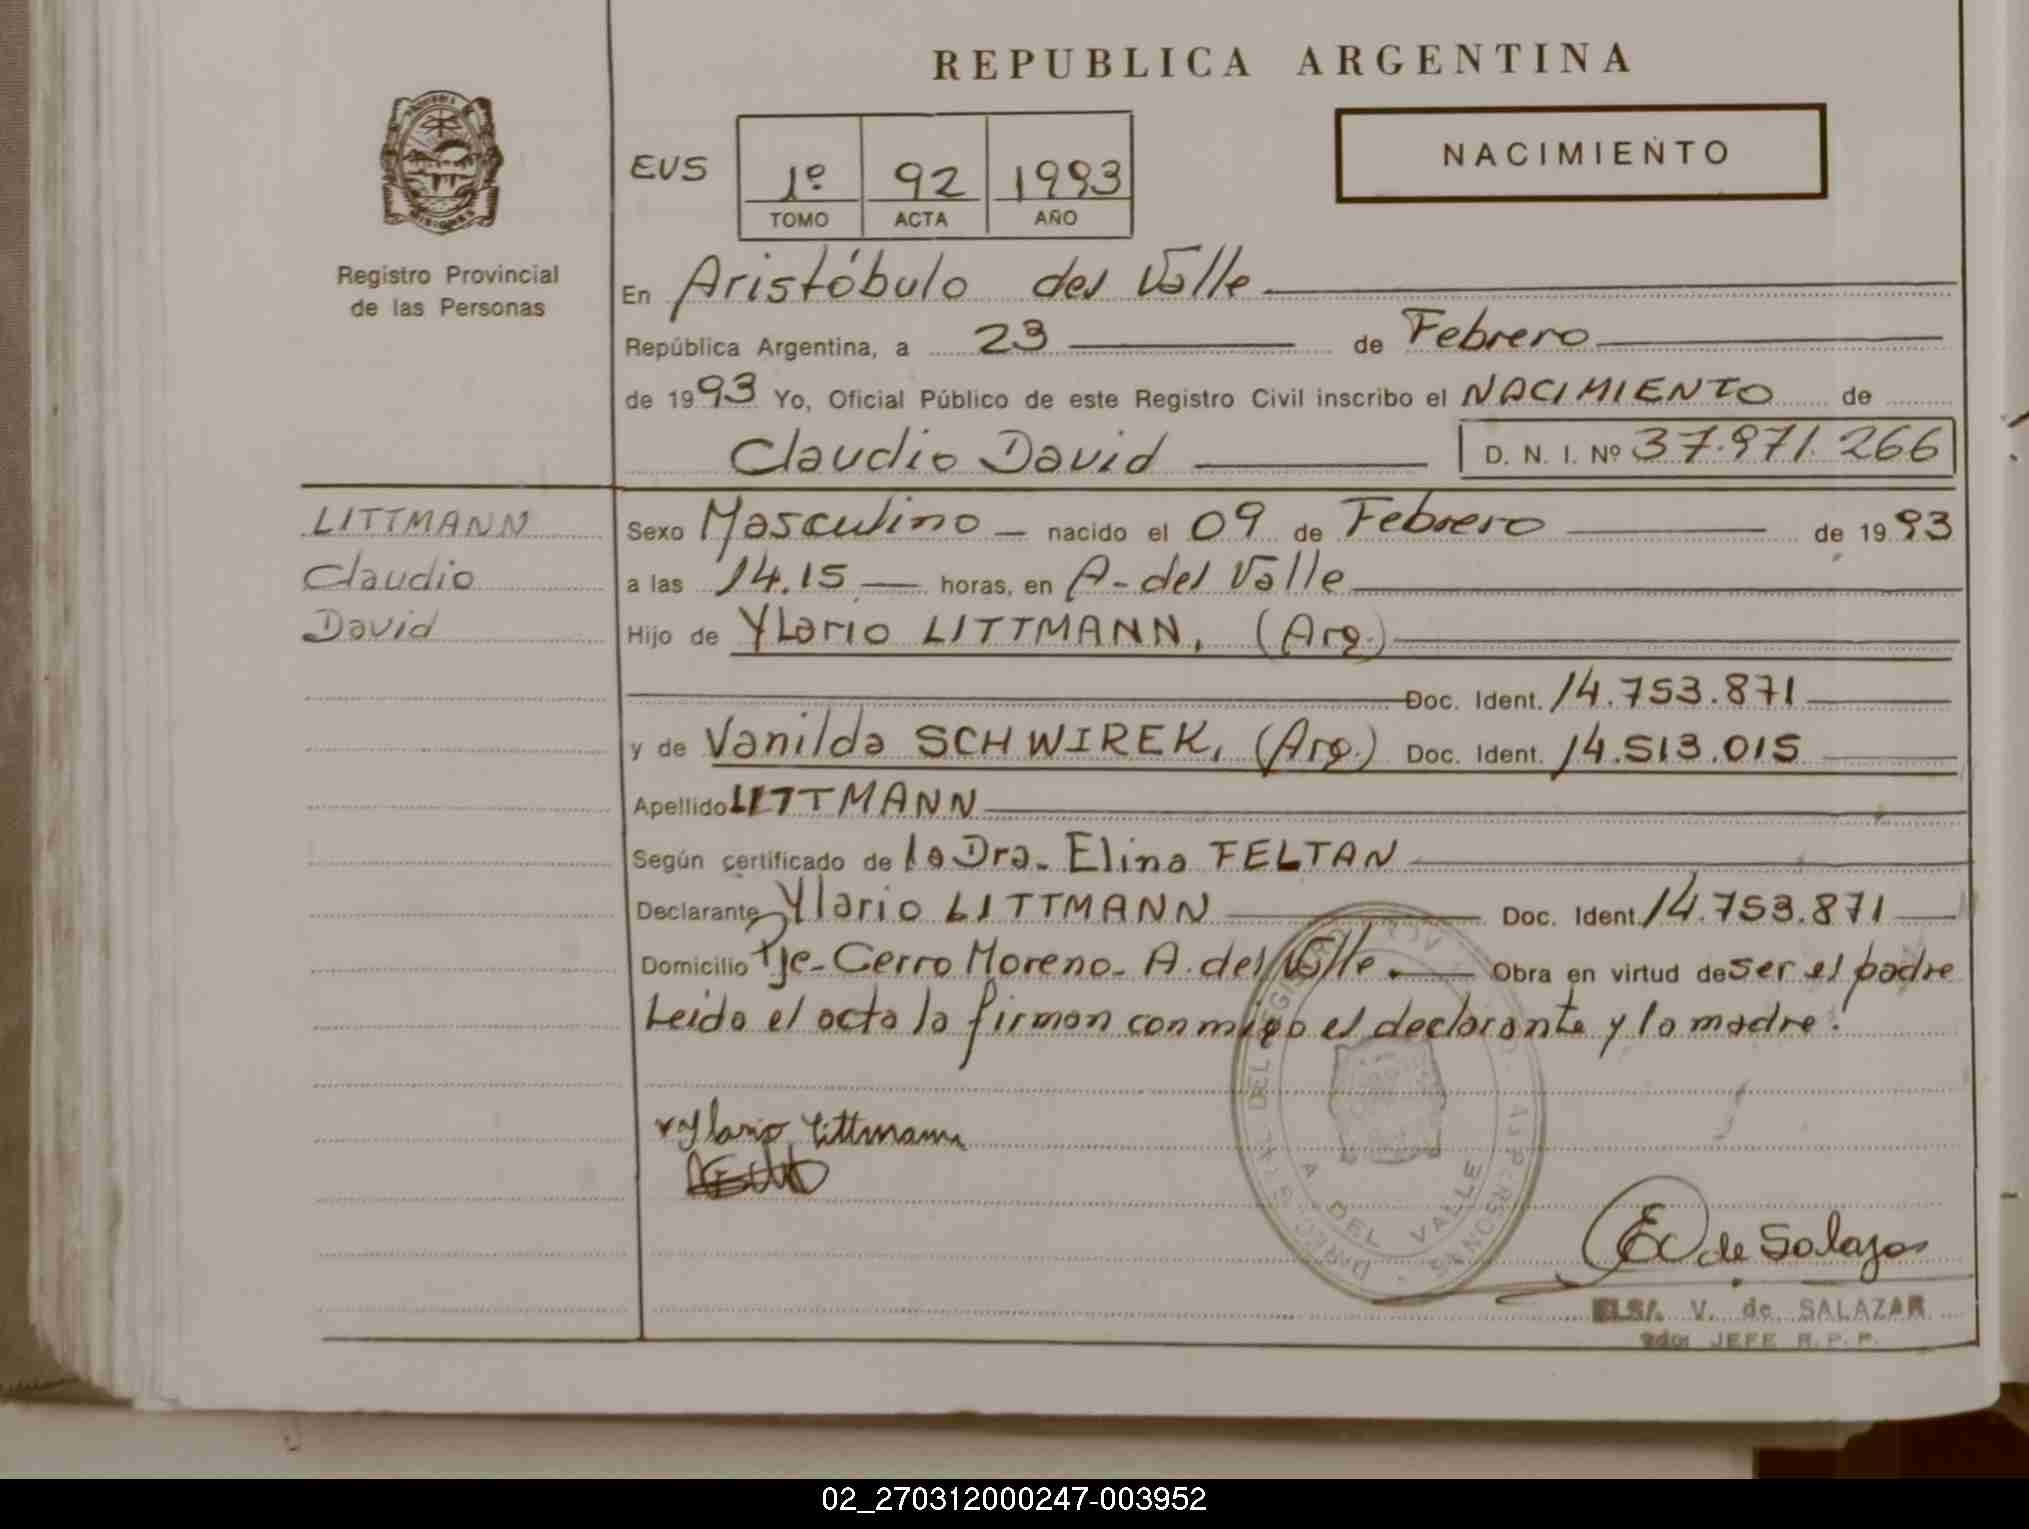 REPUBLICA ARGENTINA
NACIMIENTO
EUS 1º 92 1993
TOMO ACTA AÑO
Registro Provincial
de las Personas
En Aristóbulo del Valle
República Argentina, a 23 de Febrero
de 1993 Yo, Oficial Público de este Registro Civil inscribo el NACIMIENTO de
Claudio David D. N. I. Nº 37.971.266
LITTMANN
Claudio
David
Sexo Masculino nacido el 09 de Febrero de 1993
a las 14.15 horas, en A. del Valle
Hijo de Ylario LITTMANN, (Arg.)
Doc. Ident. 14.753.871
y de Vanilda SCHWIREK, (Arg.) Doc. Ident. 14.513.015
Apellido LITTMANN
Según certificado de la Dra. Elina FELTAN
Declarante Ylario LITTMANN Doc. Ident. 14.753.871
Domicilio Pje. Cerro Moreno. A. del Valle. Obra en virtud de ser el padre
Leida el acta la firman conmigo el declarante y la madre.
Ylario Littmann
A DEL VALLE
E V de Salazar
ELSA V. de SALAZAR
JEFE R. P. P.
02_270312000247-003952